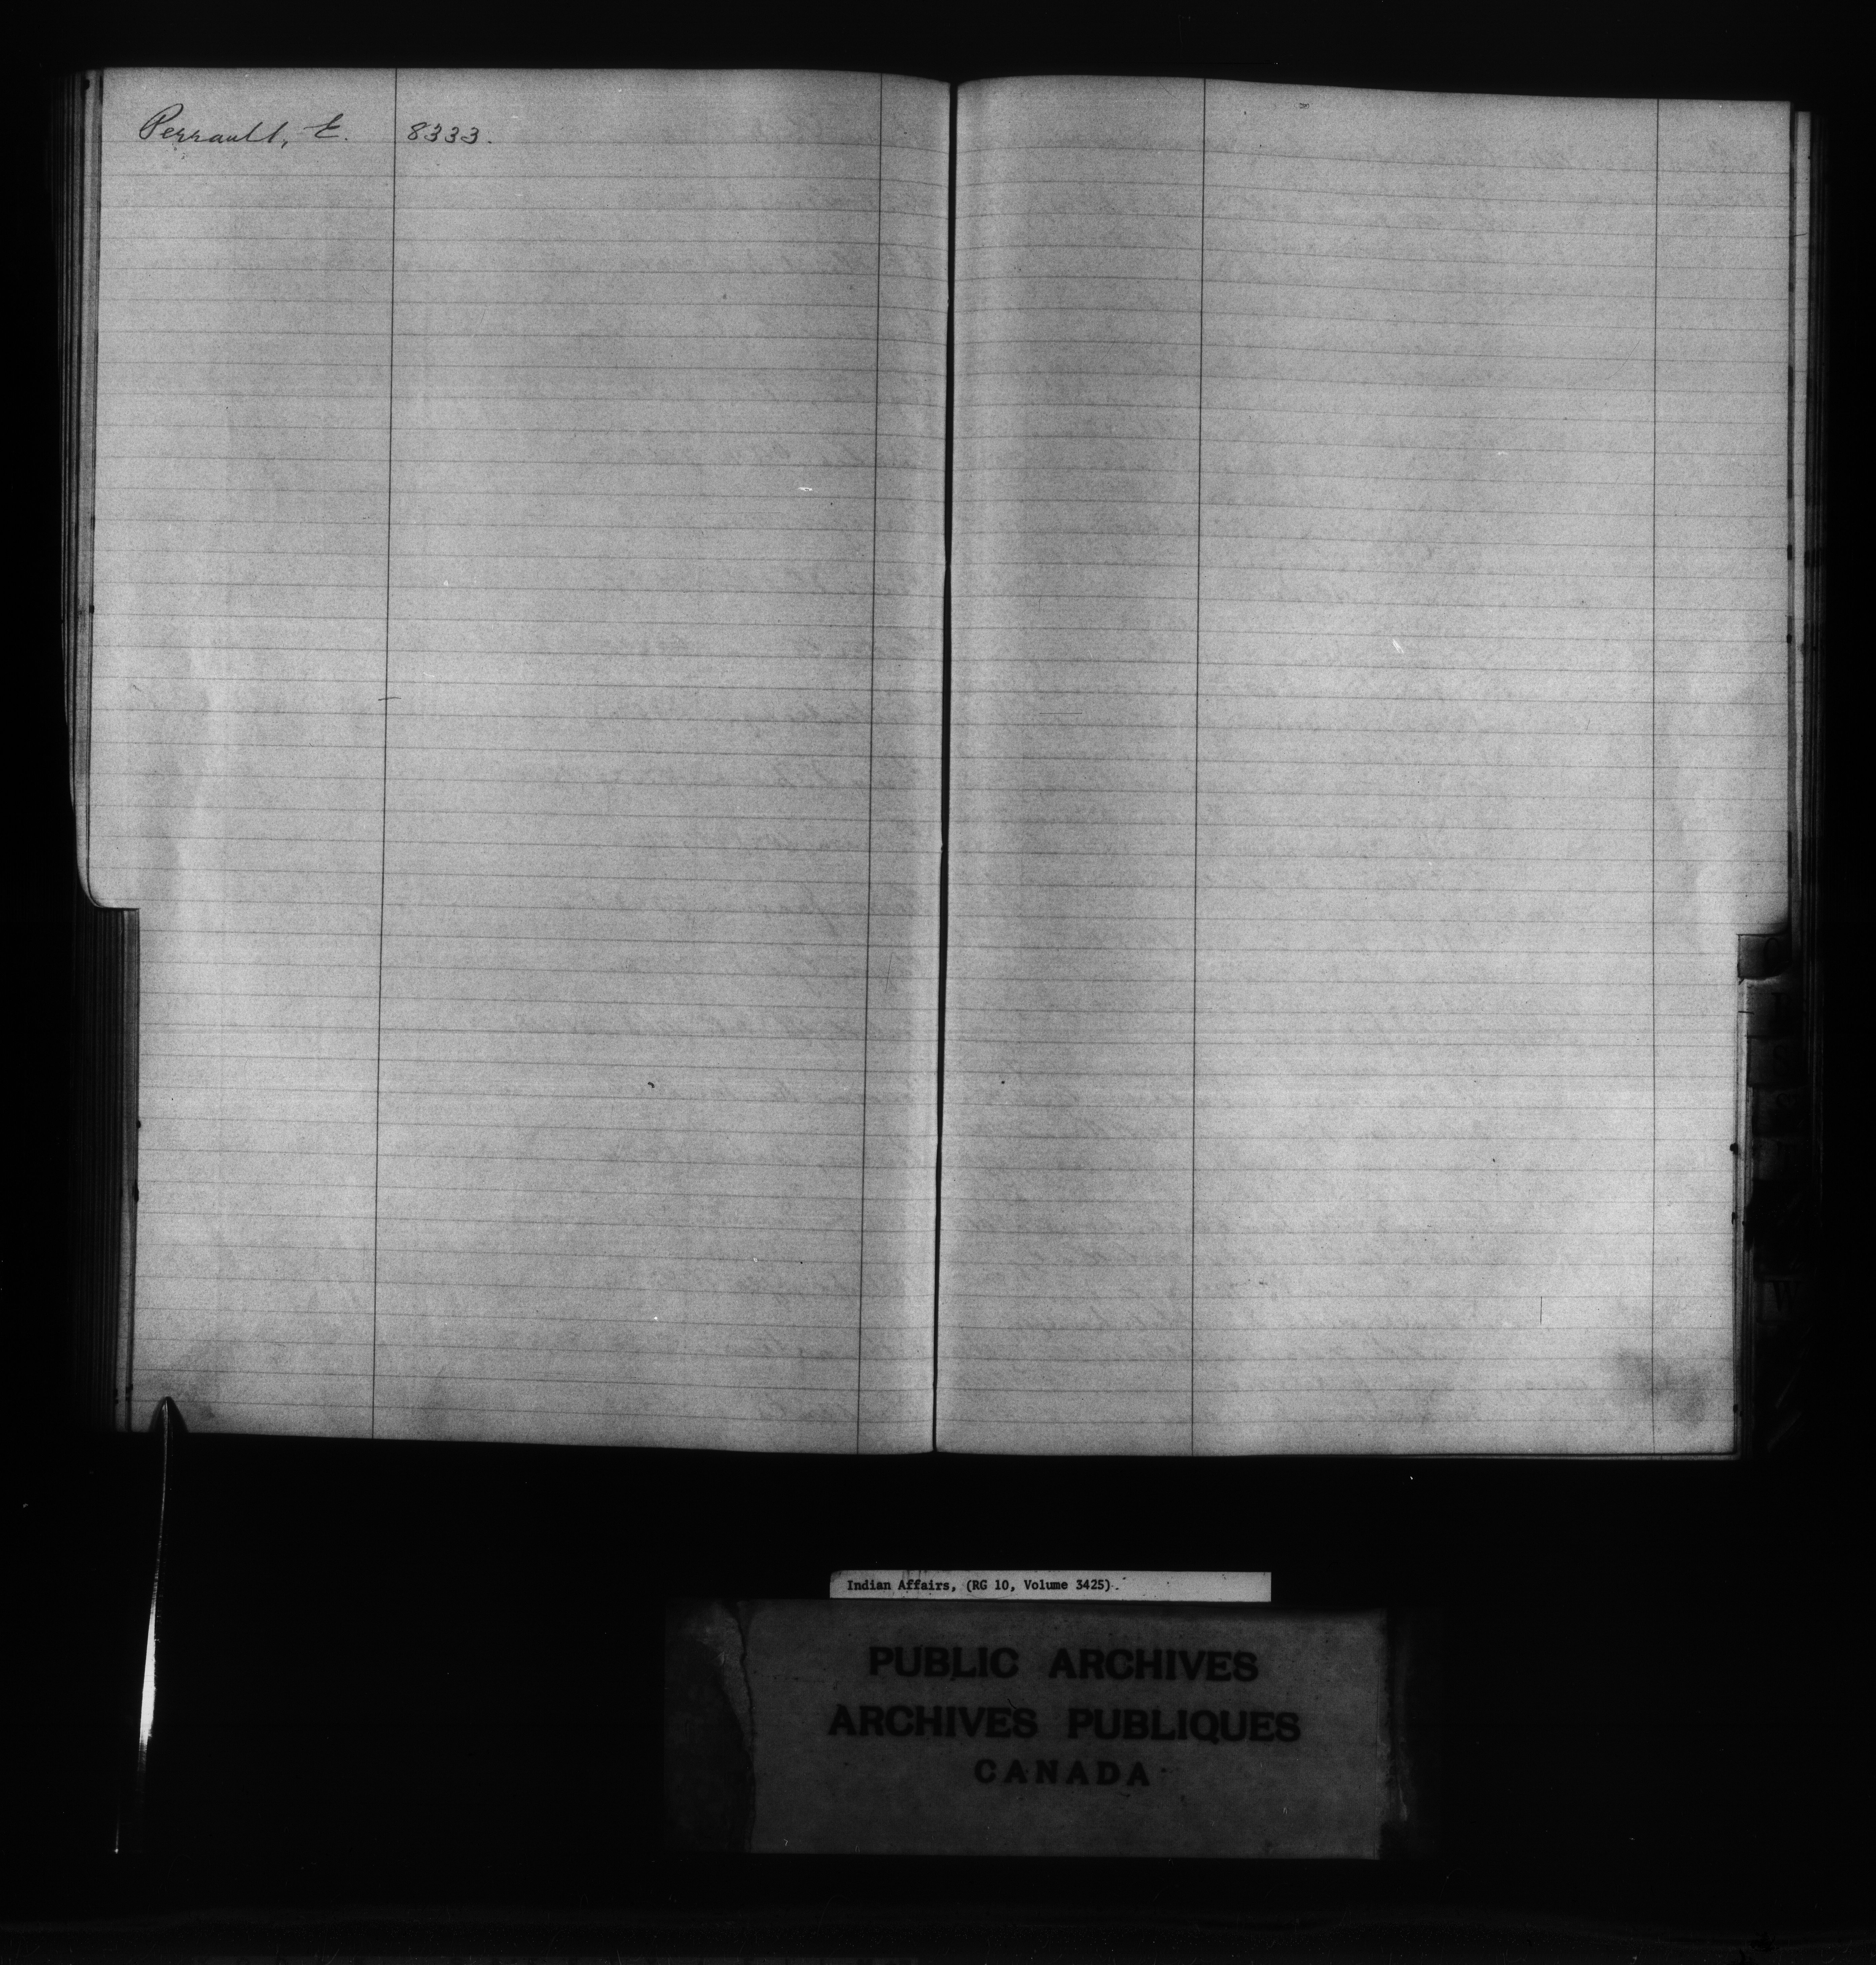 Perrault, E. 8333.
Indian Affairs, (RG 10, Volume 3425).
PUBLIC ARCHIVES
ARCHIVES PUBLIQUES
CANADA